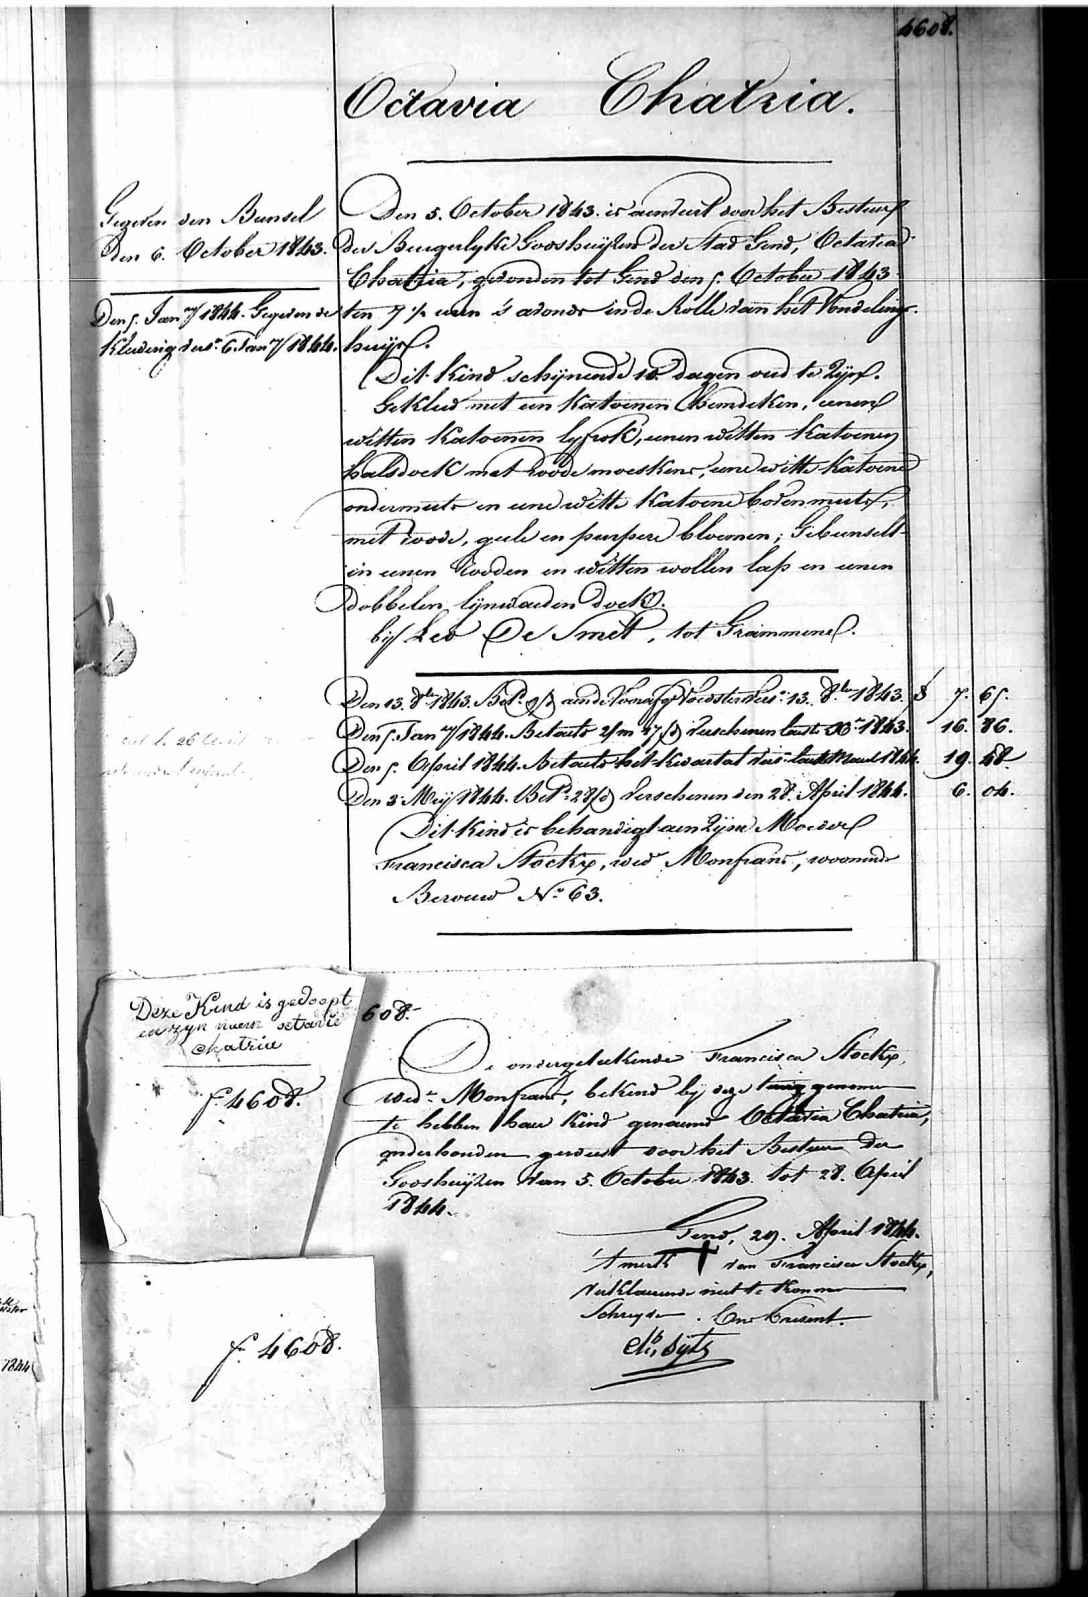 4608.
Octavia Chatria.
Gegeven den Bunsel
den 6. October 1843.
Den 5. Jan.ry 1844. Gegeven de
Kleding vers. 6. Jan.ry 1844.
Den 5. October 1843. is aenveird door het Bestuur
der Burgerlyke Godshuyzen der Stad Gend, Octavia
Chatria, gevonden tot Gend den 5. October 1843
ten 7 ½ uren 's avonds in de Rolle van het Vondeling-
huys.
Dit kind schynende 10 dagen oud te zyn.
Gekleed met een katoenen hemdeken, eenen
witten katoenen lyfrok, eenen witten katoenen
halsdoek met roode moeskens, eene witte katoene
ondermuts en eene witte katoene bovenmuts,
met roode, geele en purpere bloemen; Gebunselt
in eenen rooden en witten wollen lap en eenen
dobbelen lynwaeden doek.
by Leo De Smet, tot Grammene.
Den 13. 8.ber 1843. Bet. aende Voedster vers. 13. 8.ber 1843. 7. 65.
Den 5. Jan.ry 1844. Betaelt 2/m 17/d Verschenen laeste 10.r 1843. 16. 86.
Den 5. April 1844. Betaelt het kwartael vers. laeste Maert 1844. 19. 48
Den 3 Mey 1844. Bet. 28/d Verschenen den 28. April 1844. 6. 04.
Dit kind is behandigt aen zyne Moeder
Francisca Stockx, wed.e Monfrans, woonende
Berouw N.o 63.
Deze Kind is gedoopt
en zyn naem octavie
chatrie
f. 4608.
608.
De ondergeteekende Francisca Stockx,
wed.e Monfrans, bekend by deze terug genomen
te hebben haer kind genaemd Octavia Chatria,
onderhouden geweest door het Bestuur der
Godshuyzen van 5. October 1843. tot 28. April
1844.
Gend, 29. April 1844.
't merk † van Francisca Stockx,
verklaerende niet te konnen
Schryven.
f. 4608.
1844